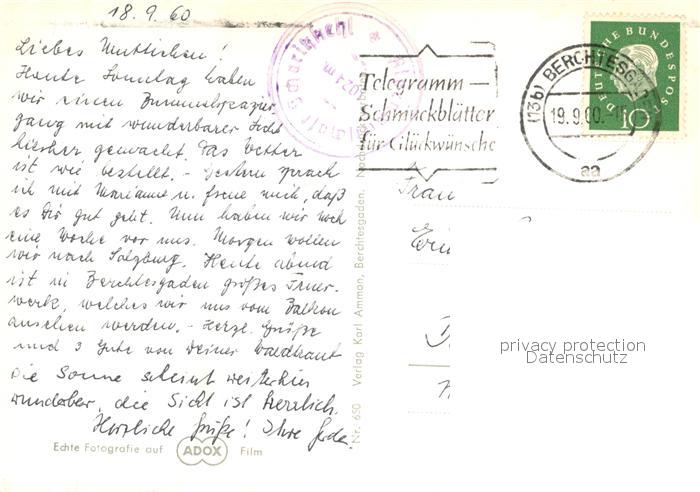 18.9.60
Liebes Muttichen!
Heute Sonntag haben
wir einen Bummelspazier-
gang mit wunderbarer Sicht
hierher gemacht. Das Wetter
ist wie bestellt. - Gestern sprach
ich mit Marianne u. freue mich, daß
es Dir gut geht. Nun haben wir noch
eine Woche vor uns. Morgen wollen
wir nach Salzburg. Heute abend
ist in Berchtesgaden großes Feuer-
werk, welches wir uns vom Balkon
ansehen werden. - Herzl. Grüße
und 3 Gute von Deiner
Die Sonne scheint weiterhin
wunderbar, die Sicht ist herrlich.
Herzliche Grüße! Ihre
Echte Fotografie auf ADOX Film
Nr. 650 Verlag Karl Ammon, Berchtesgaden.
1024 m
Telegramm-
Schmuckblätter
für Glückwünsche
(13b) BERCHTESGADEN
19.9.60.-15
aa
DEUTSCHE BUNDESPOST
10
Frau
privacy protection
Datenschutz